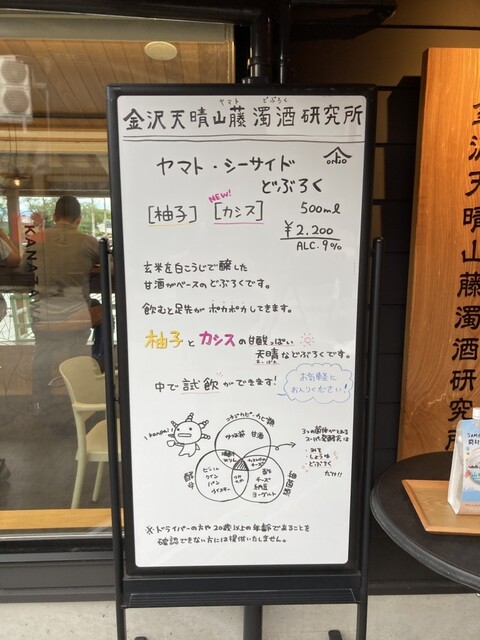 ヤマト どぶろく
金沢天晴山藤濁酒研究所
ヤマト・シーサイド
どぶろく
NEW!
[柚子] [カシス] 500ml
¥2,200
ALC.9%
玄米を白こうじで醸した
甘酒がベースのどぶろくです。
飲むと足先がポカポカしてきます。
柚子とカシスの甘酸っぱい
天晴などぶろくです。
中で試飲ができます!
お気軽に
お入りください!
甘酒
ビール
ワイン
パン
ウイスキー
チーズ
納豆
ヨーグルト
みそ
しょうゆ
どぶろく
だけ!!
※ドライバーの方や20歳以上の年齢であることを
確認できない方には提供いたしません。
KANAZAW
金沢天晴山藤濁酒研究所